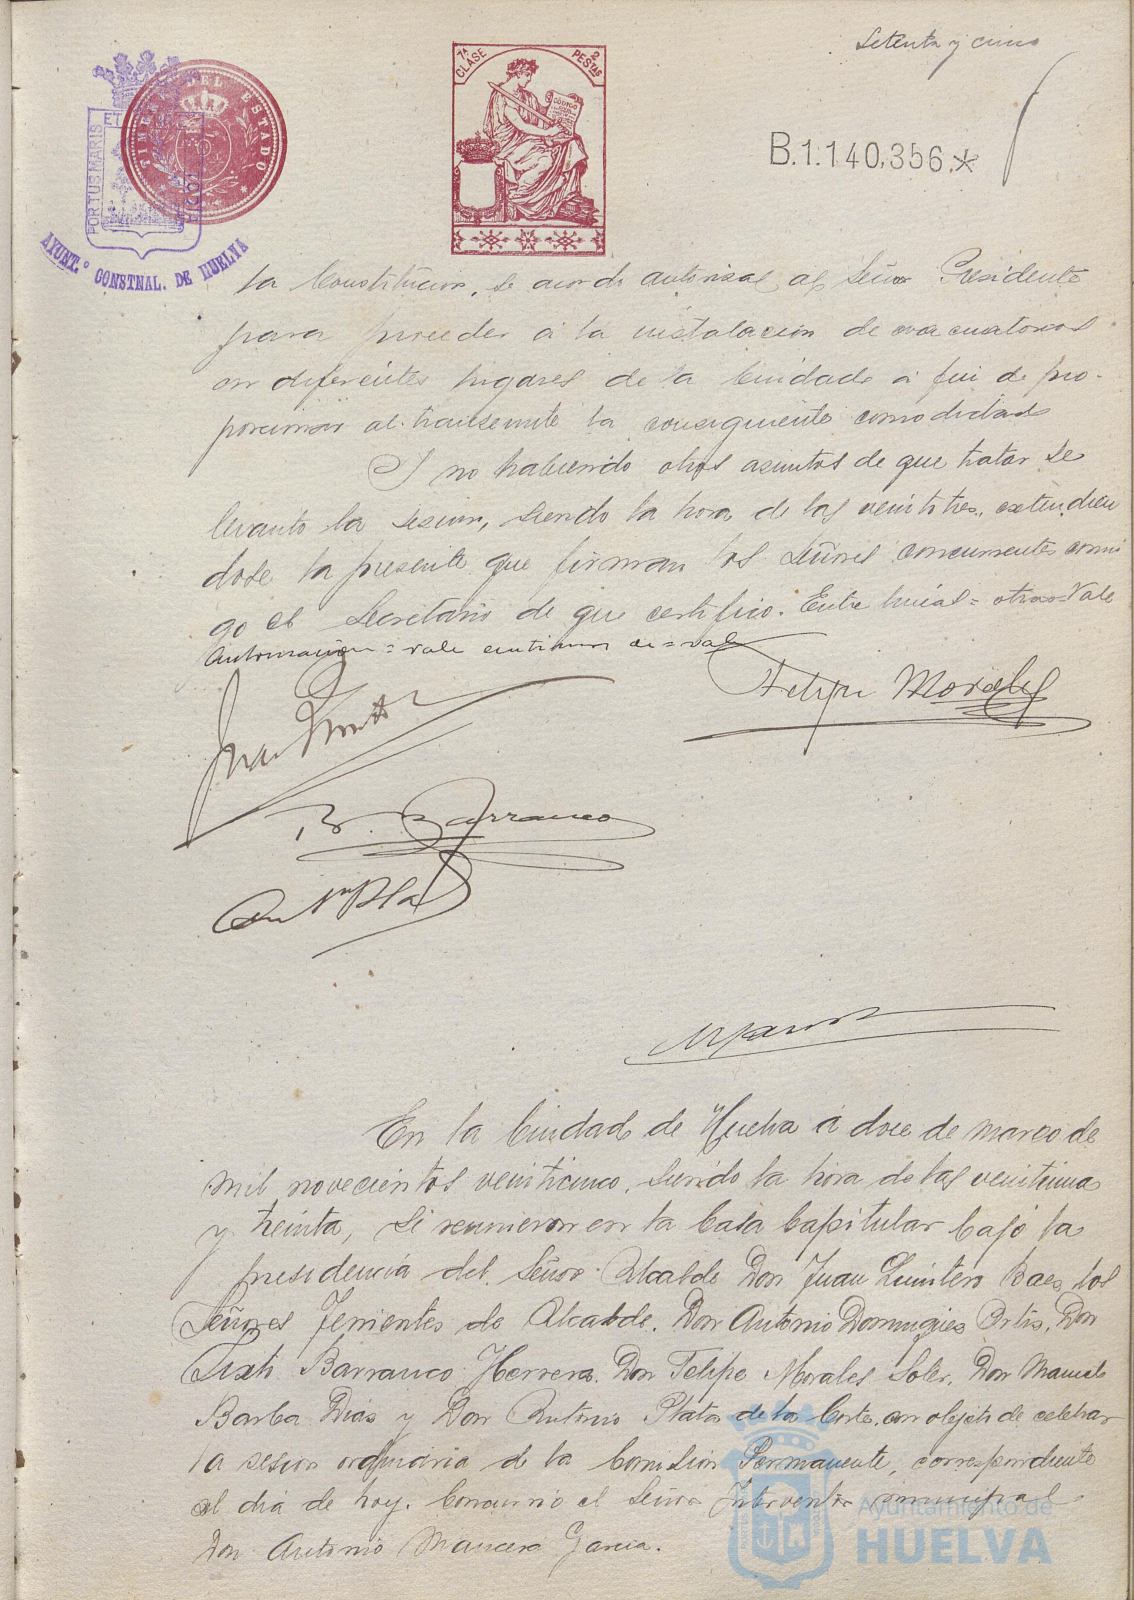 Setenta y cinco
TIMBRE DEL ESTADO
PORTUS MARIS
AYUNT.º CONSTNAL. DE HUELVA
7ª CLASE
2 PESTAS
CODIGO
B.1.140,356.*
la Constitucion, se acordo autorizar al Señor Presidente
para proceder á la instalacion de evacuatorios
en diferentes lugares de la Ciudad á fin de pro-
porcionar al transeunte la consiguiente comodidad
Y no habiendo otros asuntos de que tratar se
levanto la sesion, siendo la hora de las veintitres, extendien
dose la presente que firman los Señores concurrentes conmi
go el Secretario de que certifico. Entre lineas = otros = Vale
= vale = vale
Felipe Morales
Juan Quintero
B. Barranco
Antº Plata
En la Ciudad de Huelva á doce de marzo de
mil novecientos veinticinco, siendo la hora de las veintiuna
y treinta, se reunieron en la Casa Capitular bajo la
presidencia del Señor Alcalde Don Juan Quintero Baez, los
Señores Tenientes de Alcalde, Don Antonio Dominguez Ortiz, Don
Barranco Herrera, Don Felipe Morales Soler, Don Manuel
Barba Dias y Don Antonio Plata de la Corte, con objeto de celebrar
la sesion ordinaria de la Comision Permanente, correspondiente
al dia de hoy. Concurrio el Señor Interventor municipal
Don Antonio Mancera Garcia.
Ayuntamiento de
HUELVA